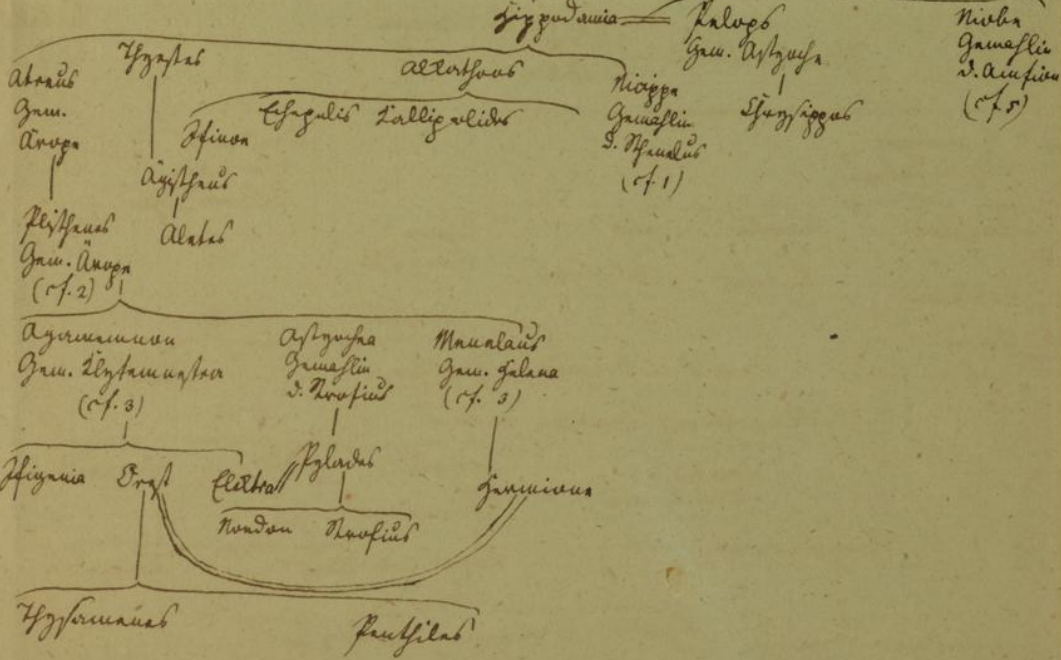 Hippodamia
Pelops
Gem. Astyoche
Niobe
Gemahlin
d. Amfion
(cf. 5)
Chrysippos
Atreus
Gem.
Ärope
Thyestes
Alkathoos
Nicippe
Gemahlin
d. Sthenelus
(cf. 1)
Ifinoe
Echepolis
Kallipolides
Ägistheus
Aletes
Plisthenes
Gem. Ärope
(cf. 2)
Agamemnon
Gem. Klytemnestra
(cf. 3)
Astyochea
Gemahlin
d. Strofius
Menelaus
Gem. Helena
(cf. 3)
Ifigenia
Orest
Elektra
Pylades
Hermione
Medon
Strofius
Thysamenes
Penthiles